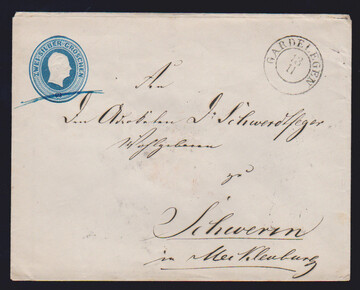 ZWEI SILBER GROSCHEN
GARDELEGEN
13
11
An
Den Advokaten Dr Schwerdtfeger
Wohlgeboren
zu
Schwerin
in Mecklenburg